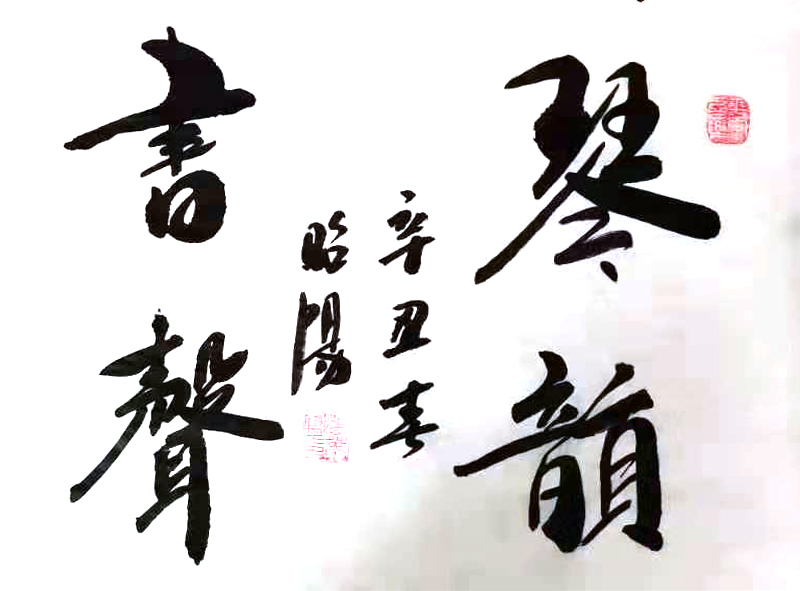 琴韻
辛丑春
昭陽
書聲